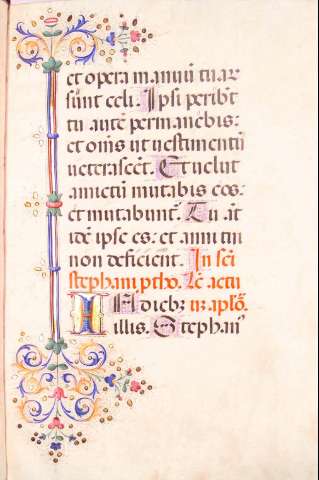 et opera manuū tuaꝝ
sūnt celi. Ipsi peribūt
tu autē permanebis:
et oīnis ut uestimentū
ueterascet. Et uelut
amictū mutabis eos:
et mutabunt. Tu aūt
idē ipse es: et anni tui
non deficient. In sc̄i
stephani ptho. Lc̄ actu
IN Diebꝫ ur aplōꝝ
illis. Stephanꝰ